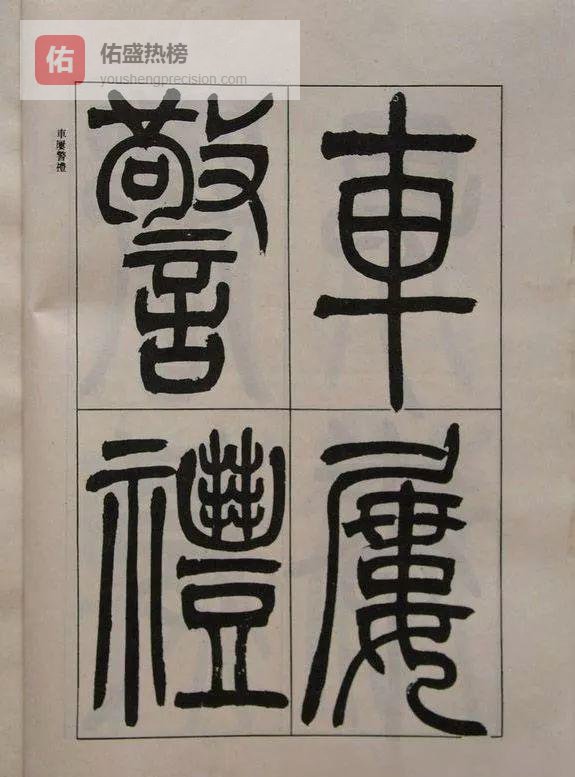 佑
佑盛热榜
youshengprecision.com
車屢
警禮
車屢警禮